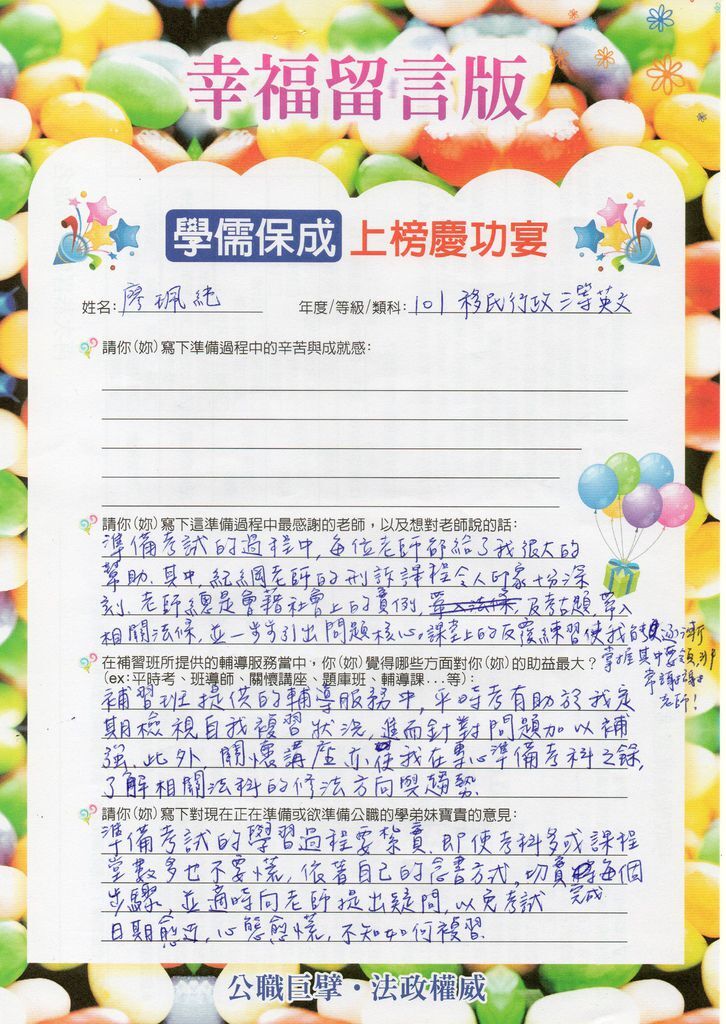 幸福留言版
學儒保成 上榜慶功宴
姓名: 廖珮純 年度/等級/類科: 101 移民行政三等英文
請你(妳)寫下準備過程中的辛苦與成就感:
請你(妳)寫下這準備過程中最感謝的老師，以及想對老師說的話:
準備考試的過程中,每位老師都給了我很大的
幫助.其中,紀綱老師的刑訴課程令人印象十分深
刻.老師總是會藉社會上的實例,及考古題,帶入
相關法條,並一步步引出問題核心,課堂上的反覆練習使我能逐漸
掌握其中要領,非
常謝謝
老師!
在補習班所提供的輔導服務當中，你(妳)覺得哪些方面對你(妳)的助益最大？
(ex:平時考、班導師、關懷講座、題庫班、輔導課...等):
補習班提供的輔導服務中,平時考有助於我定
期檢視自我複習狀況,進而針對問題加以補
強.此外,關懷講座亦使我在專心準備考科之餘,
了解相關法科的修法方向與趨勢.
請你(妳)寫下對現在正在準備或欲準備公職的學弟妹寶貴的意見:
準備考試的學習過程要紮實.即使考科多或課程
堂數多也不要慌,依著自己的念書方式,切實完成每個
步驟,並適時向老師提出疑問,以免考試
日期愈近,心態愈慌,不知如何複習.
公職巨擘・法政權威